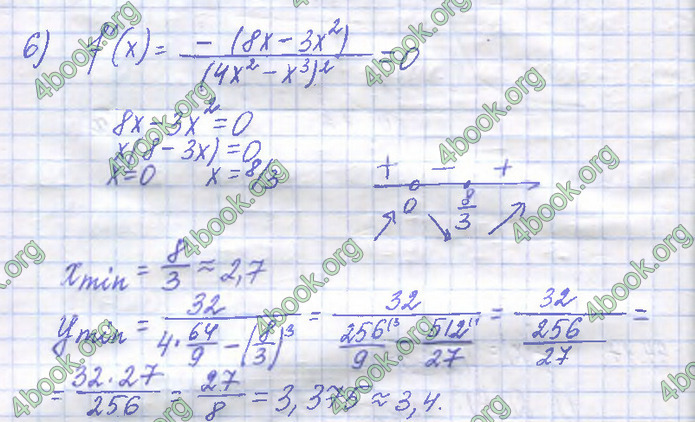 6) f'(x) = -(8x - 3x²) / (4x² - x³)² = 0
8x - 3x² = 0
x(8 - 3x) = 0
x = 0    x = 8/3
+ - +
0 8/3
xmin = 8/3 ≈ 2,7
ymin = 32 / (4 · 64/9 - (8/3)³) = 32 / (256/9 - 512/27) = 32 / (256/27) =
= 32·27 / 256 = 27/8 = 3,375 ≈ 3,4.
4book.org